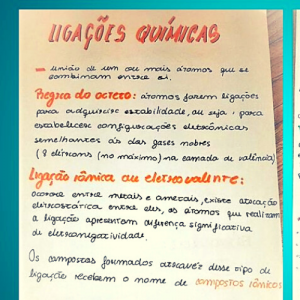 LIGAÇÕES QUÍMICAS
- união de um ou mais átomos que se
combinam entre si.
Regra do octeto: átomos fazem ligações
para adquirir estabilidade, ou seja, para
estabelecer configurações eletrônicas
semelhantes às dos gases nobres
(8 elétrons (no máximo) na camada de valência)
Ligação iônica ou eletrovalente:
ocorre entre metais e ametais, existe atração
eletrostática entre eles, os átomos que realizam
a ligação apresentam diferença significativa
de eletronegatividade.
Os compostos formados através desse tipo de
ligação recebem o nome de compostos iônicos